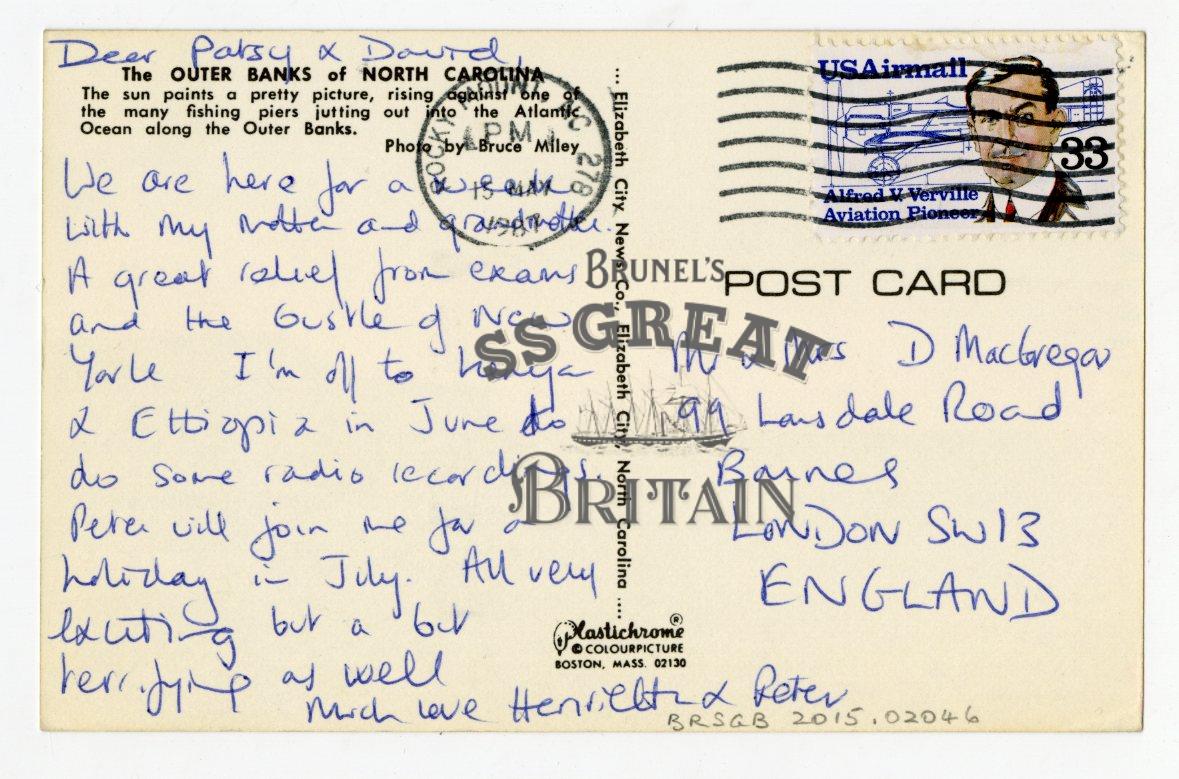 Dear Patsy & David,
The OUTER BANKS of NORTH CAROLINA
The sun paints a pretty picture, rising against one of
the many fishing piers jutting out into the Atlantic
Ocean along the Outer Banks.
Photo by Bruce Miley
We are here for a week
with my mother and grandmother.
A great relief from exams
and the bustle of New
York I'm off to Kenya
& Ethiopia in June to
do some radio recordings.
Peter will join me for a
holiday in July. All very
exciting but a bit
terrifying as well
Much love Henrietta & Peter
.... Elizabeth City News Co., Elizabeth City, North Carolina ....
Plastichrome ®
© COLOURPICTURE
BOSTON, MASS. 02130
ROCKY MOUNT NC 278
PM
15 MAY
USAirmail
33
Alfred V. Verville
Aviation Pioneer
POST CARD
Mr & Mrs D MacGregor
99 Lonsdale Road
Barnes
LONDON SW13
ENGLAND
BRUNEL'S
SS GREAT
BRITAIN
BRSGB 2015.02046